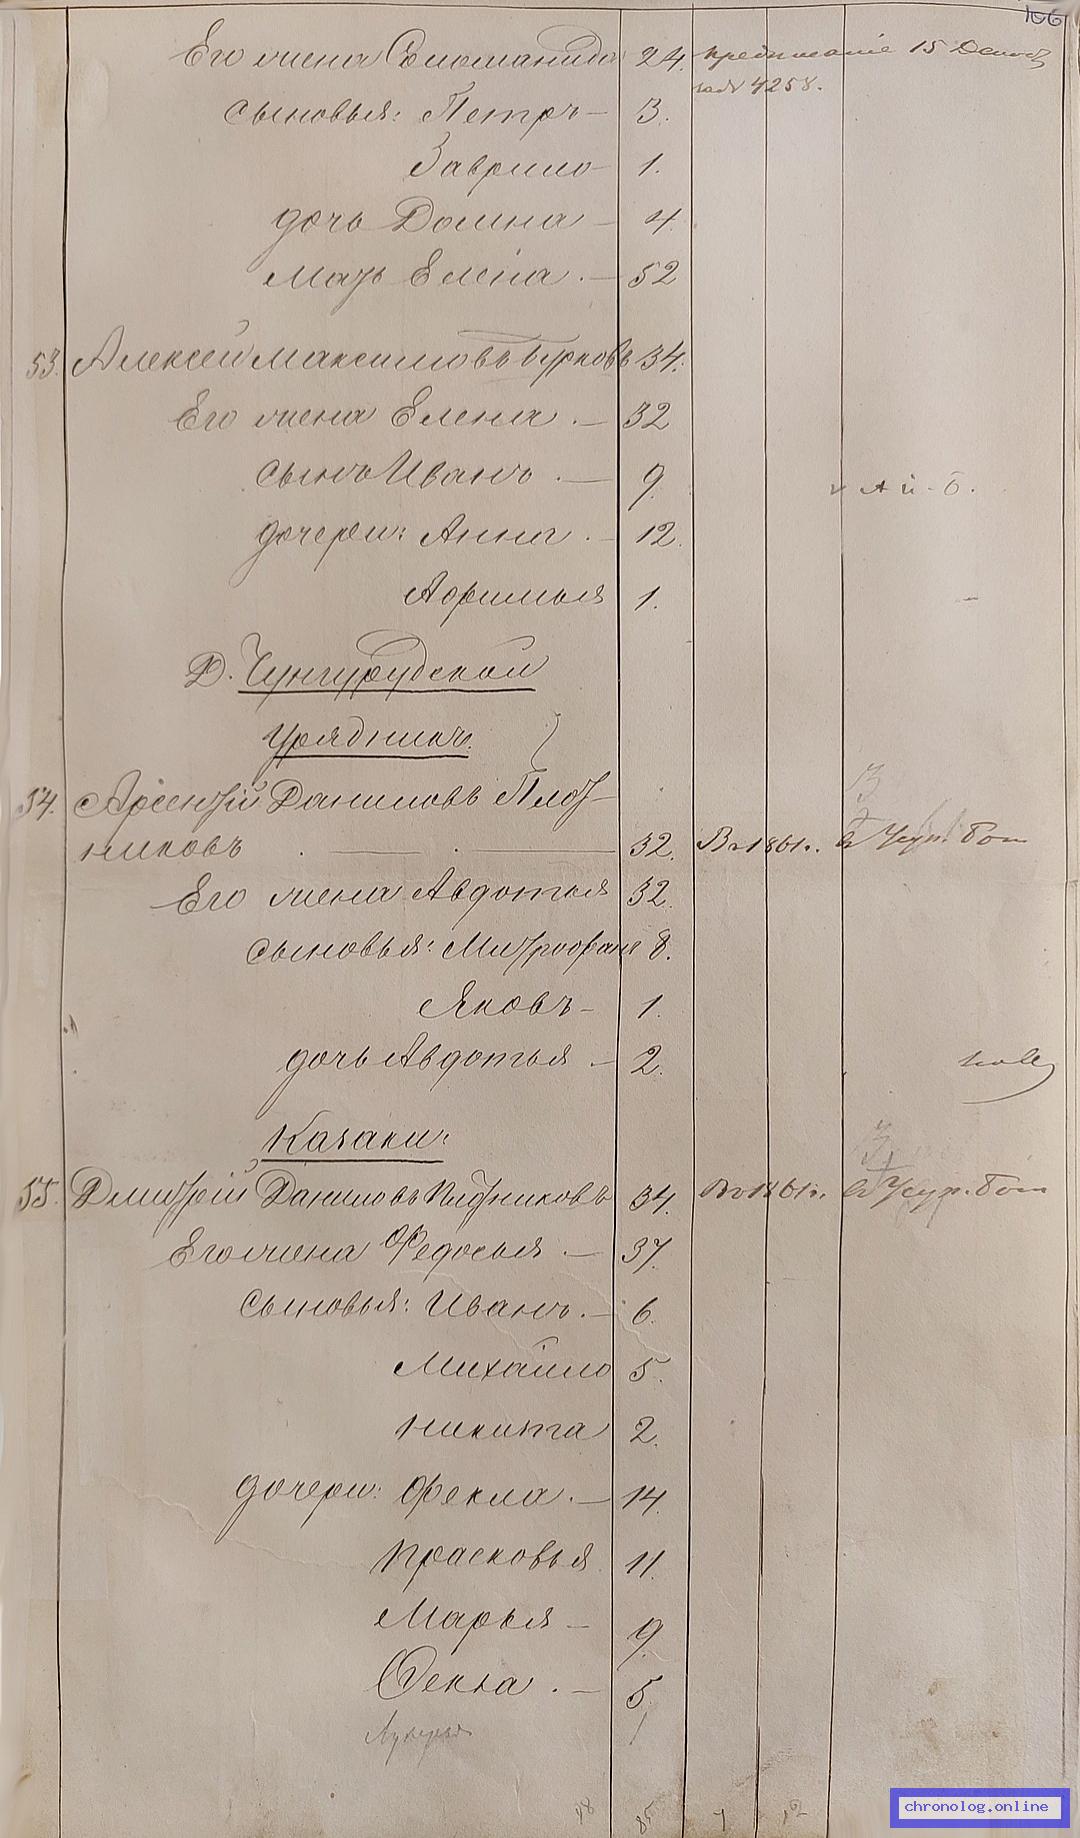 106
Его жена Соломанида 24. предписаніе 15 Декаб
за № 4258.
сыновья: Петръ — 3.
Гаврило — 1.
дочь Домна — 4
Мать Елена. — 52
53. Алексей Максимовъ Бурковъ 34.
Его жена Елена. — 32
сынъ Иванъ. — 9.
дочери: Анна. — 12.
Афимья 1.
Д. Чунгурудской
Урядникъ.
54. Арсентій Даниловъ Плот-
никовъ 32. Въ 1861 г. в Усур. бат
Его жена Авдотья 32.
сыновья: Митрофанъ 8.
Яковъ — 1.
дочь Авдотья — 2.
Казаки:
55. Дмитрій Даниловъ Плотниковъ 34. Въ 1861 г. в Усур. бат
Его жена Федосья. — 37.
сыновья: Иванъ. — 6.
Михайло 5.
Никита 2.
дочери: Фекла. — 14.
Прасковья 11.
Марья — 9.
Фекла. — 5.
Лукерья 1
48 85 7 12
chronolog.online